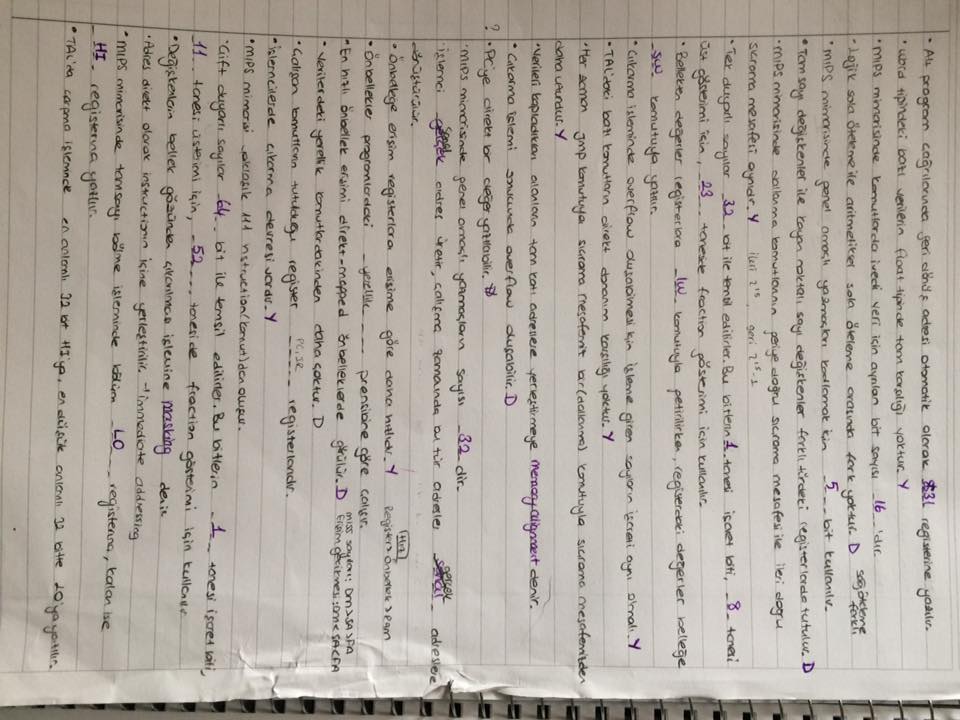 • Alt program çağrılarında geri dönüş adresi otomatik olarak $31 registerine yazılır.
• word tipindeki bazı verilerin float tipinde tam karşılığı yoktur. Y
• MIPS mimarisinde komutlarda ivedi veri için ayrılan bit sayısı 16 'dır.
• Lojik sola öteleme ile aritmetiksel sola öteleme arasında fark yoktur. D sağ öteleme farklı
• MIPS mimarisinde genel amaçlı yazmaçları kodlamak için 5 bit kullanılır.
• Tam sayı değişkenler ile kayan noktalı sayı değişkenler farklı türdeki registerlarda tutulur. D
• MIPS mimarisinde dallanma komutlarının geriye doğru sıçrama mesafesi ile ileri doğru
sıçrama mesafesi aynıdır. Y ileri 2^15, geri 2^15-1
• Tek duyarlı sayılar 32 bit ile temsil edilirler. Bu bitlerin 1 tanesi işaret biti, 8 tanesi
üst gösterimi için, 23 taneside fraction gösterimi için kullanılır.
• Bellekten değerler registerlara lw komutuyla getirilirken, registerdaki değerler belleğe
sw komutuyla yazılır.
• Çıkarma işleminde overflow oluşabilmesi için işleme giren sayıların işareti aynı olmalı. Y
• TAL'daki bazı komutların direkt donanım karşılığı yoktur. Y
• Her zaman jmp komutuyla sıçrama mesafemiz bir (dallanma) komutuyla sıçrama mesafemizden
daha uzundur. Y
• Verileri kapladıkları alanların tam katı adreslere yerleştirmeye memory alignment denir.
• Çıkarma işlemi sonucunda overflow oluşabilir. D
? • PC'ye direkt bir değer yazılabilir.
• MIPS mimarisinde genel amaçlı yazmaçların sayısı 32 dir.
• İşlemci sanal adres üretir, çalışma zamanında bu tür adresler gerçek adreslere
dönüştürülür.
• Önbelleğe erişim registerlara erişime göre daha hızlıdır. Y Hız Register > Önbellek > Ram
• Önbellekler programlardaki yerellik prensibine göre çalışır.
• En hızlı önbellek erişimi direkt-mapped önbelleklerde görülür. D miss sayıları: DM>SA>FA Erişim gecikmesi: DM<SA<FA
• Verilerdeki yerellik komutlardakinden daha çoktur. D
• Çalışan komutların tutulduğu register PC, IR registerlarıdır.
• İşlemcilerde çıkarma devresi vardır. Y
• MIPS mimarisi yaklaşık 111 instruction(komut)dan oluşur.
• Çift duyarlı sayılar 64 bit ile temsil edilirler. Bu bitlerin 1 tanesi işaret biti,
11 tanesi üsterimi için, 52 taneside fraction gösterimi için kullanılır
• Değişkenlerin bellek gözünden çıkarılması işlemine masking denir
• Adres direkt olarak instructionın içine yerleştirilir. → immediate addressing
• MIPS mimarisinde tamsayı bölme işleminde bölüm LO registerına, kalan ise
HI registerına yazılır.
• TAL'da çarpma işleminde en anlamlı 32 bit HI'ya, en düşük anlamlı 32 bitte LO'ya yazılır.